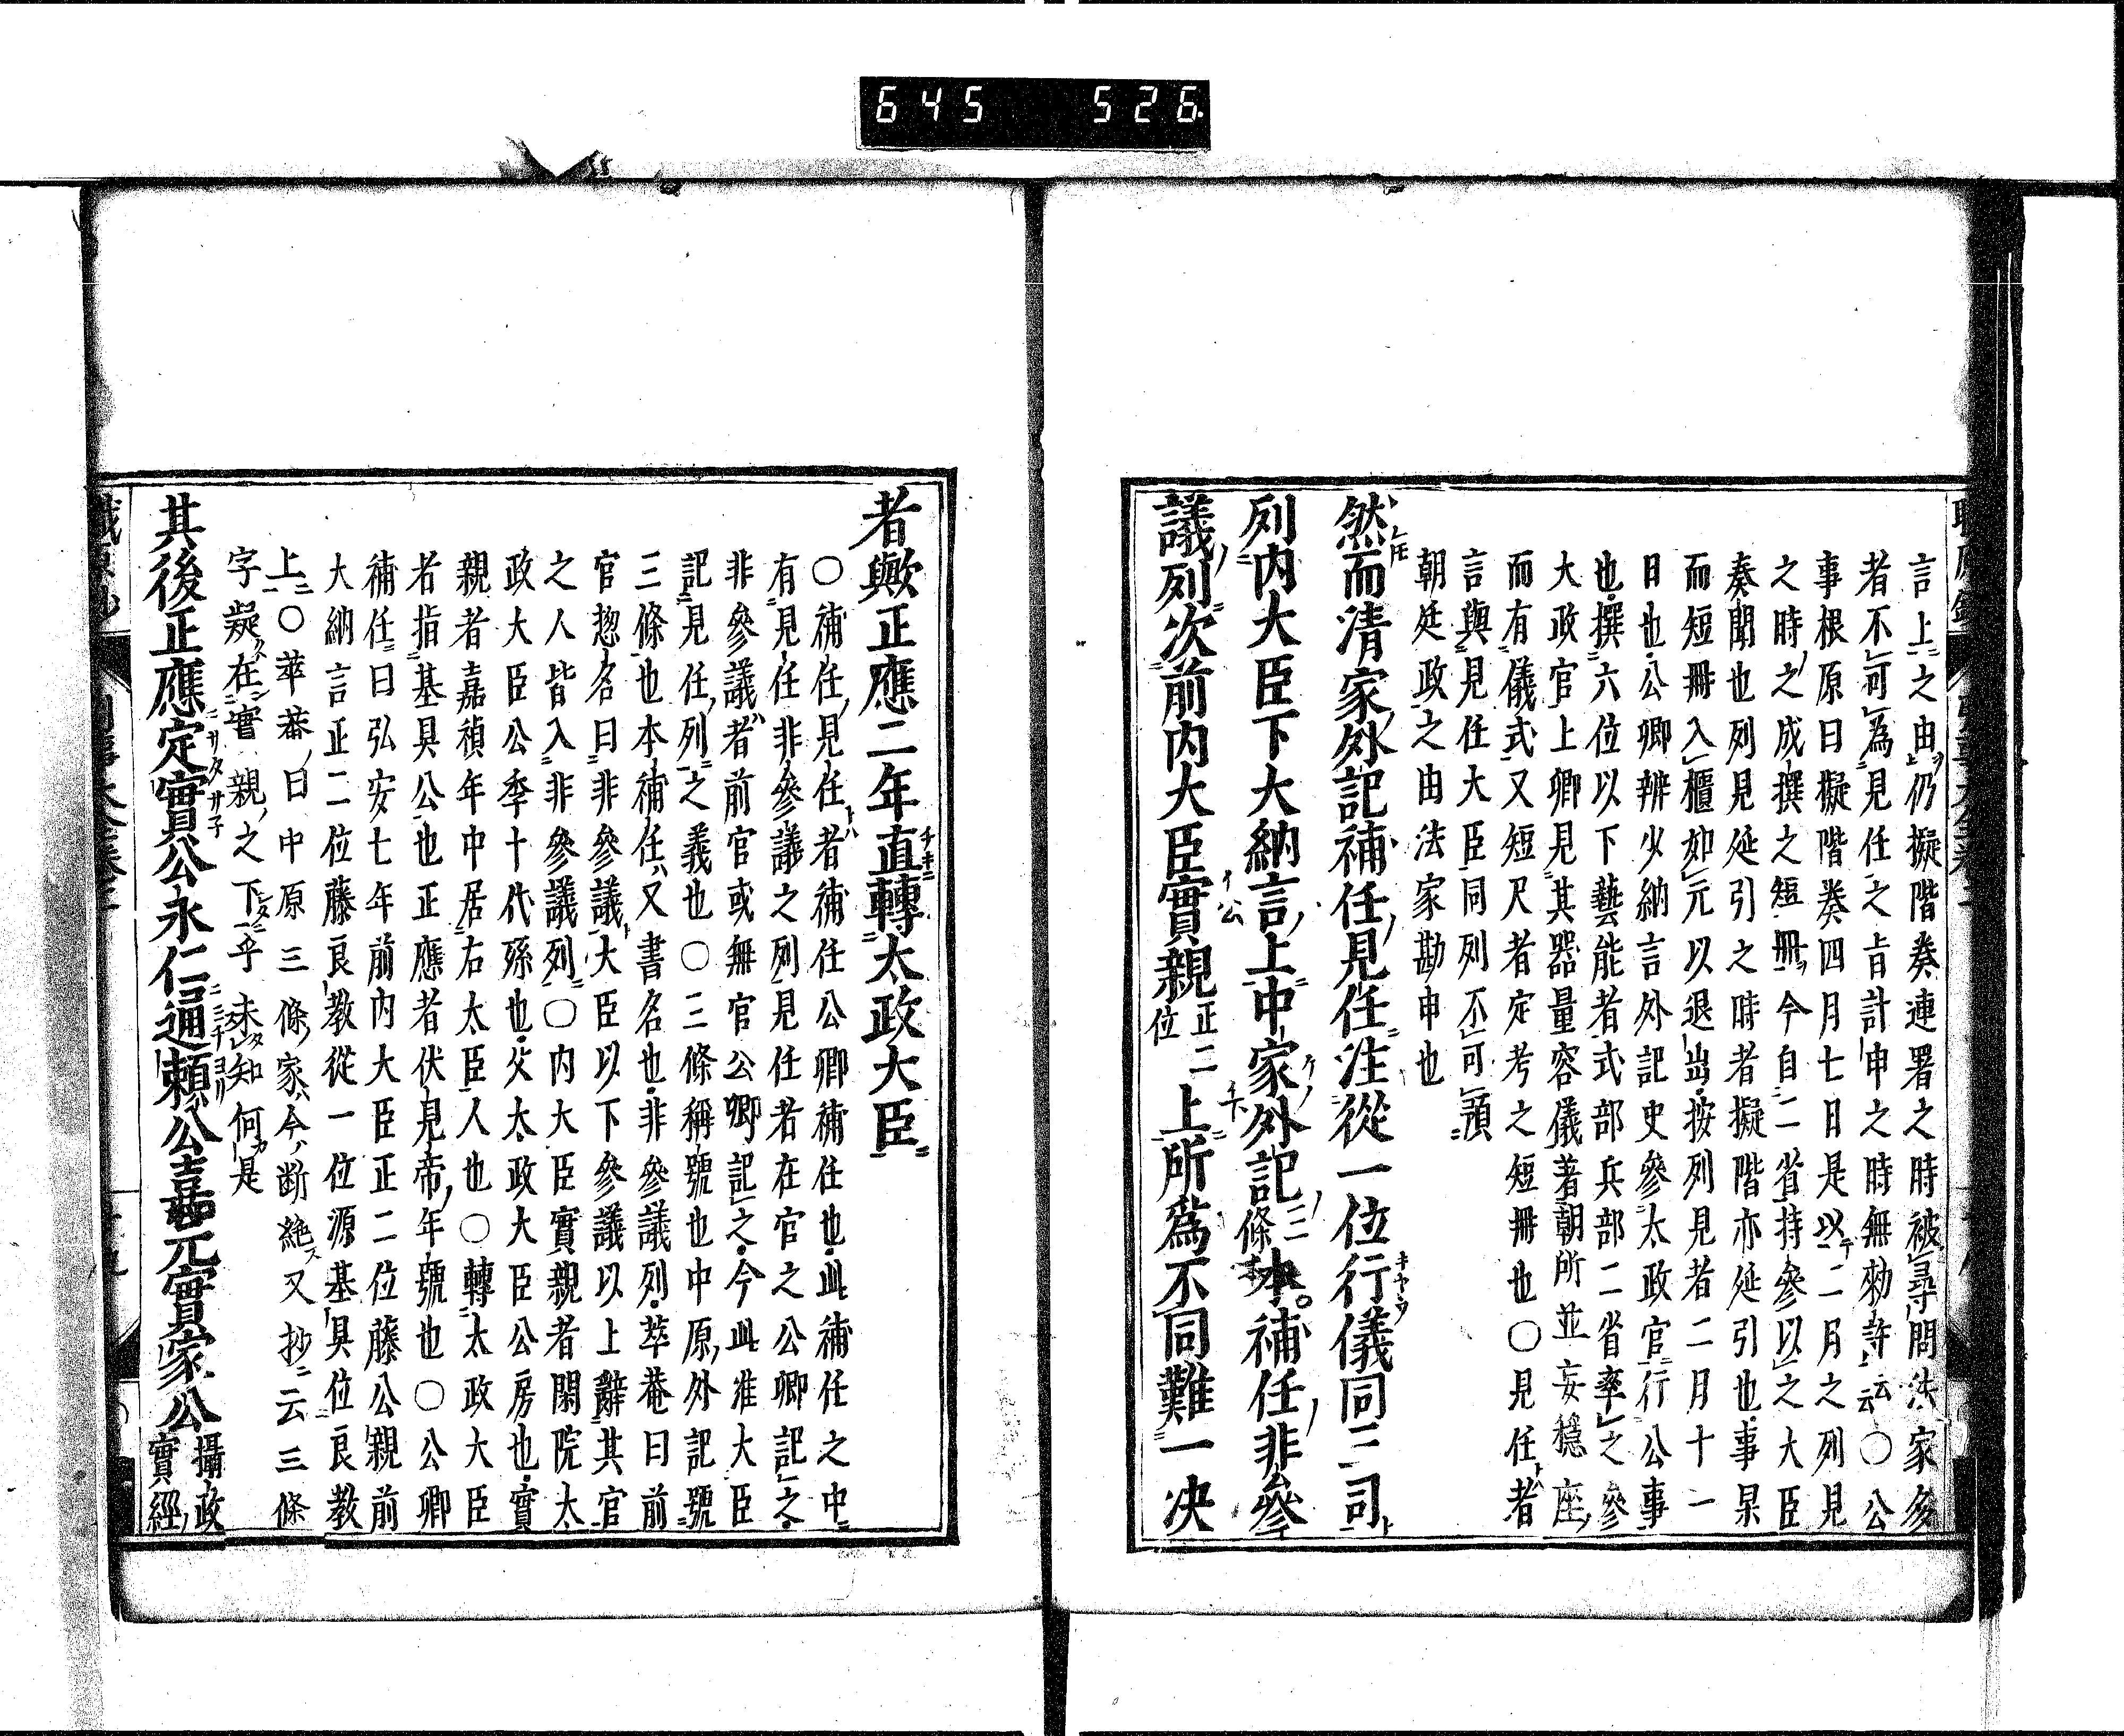 645 526
言上之由仍擬階奏連署之時被尋問法家多
者不可為見任之旨計申之時無勅許云云〇公
事根原曰擬階奏四月七日是以二月之列見
之時之成撰之短冊今自二省持參以之大臣
奏聞也列見延引之時者擬階亦延引也事杲
而短冊入櫃如元以退出按列見者二月十一
日也公卿辨少納言外記史參太政官行公事
也撰六位以下藝能者式部兵部二省率之參
大政官上卿見其器量容儀著朝所並妄穏座
而有儀式又短尺者定考之短冊也〇見任者
言與見任大臣同列不可預
朝廷政之由法家勘申也
然而清家外記補任見任注從一位行儀同三司
列内大臣下大納言上中家外記三條本補任非參
議列次前内大臣實親正二位上所為不同難一决
者歟正應二年直轉太政大臣
〇補任見任者補任公卿補任也此補任之中
有見任非參議之列見任者在官之公卿記之
非參議者前官或無官公卿記之今此准大臣
記見任列之義也〇三條稱號也中原外記號
三條也本補任又書名也非參議列萃菴曰前
官惣名曰非參議大臣以下參議以上辭其官
之人皆入非參議列〇内大臣實親者閑院太
政大臣公季十代孫也父太政大臣公房也實
親者嘉禎年中居右太臣人也〇轉太政大臣
者指基具公也正應者伏見帝年號也〇公卿
補任曰弘安七年前内大臣正二位藤公親前
大納言正二位藤良教從一位源基具位良教
上〇萃菴曰中原三條家今断絶又抄云三條
字疑在實親之下乎未知何是
其後正應定實公永仁通頼公嘉元實家公攝政實經